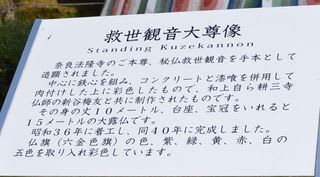 救世観音大尊像
Standing Kuzekannon
奈良法隆寺のご本尊、秘仏救世観音を手本として
造顕されました。
中心に鉄心を組み、コンクリートと漆喰を併用して
肉付けした上に彩色したもので、和上自ら耕三寺
仏師の新谷梅友と共に制作されたものです。
その身の丈10メートル、台座、宝冠をいれると
15メートルの大露仏です。
昭和36年に着工し、同40年に完成しました。
仏旗（六金色旗）の色、紫、緑、黄、赤、白の
五色を取り入れ彩色しています。